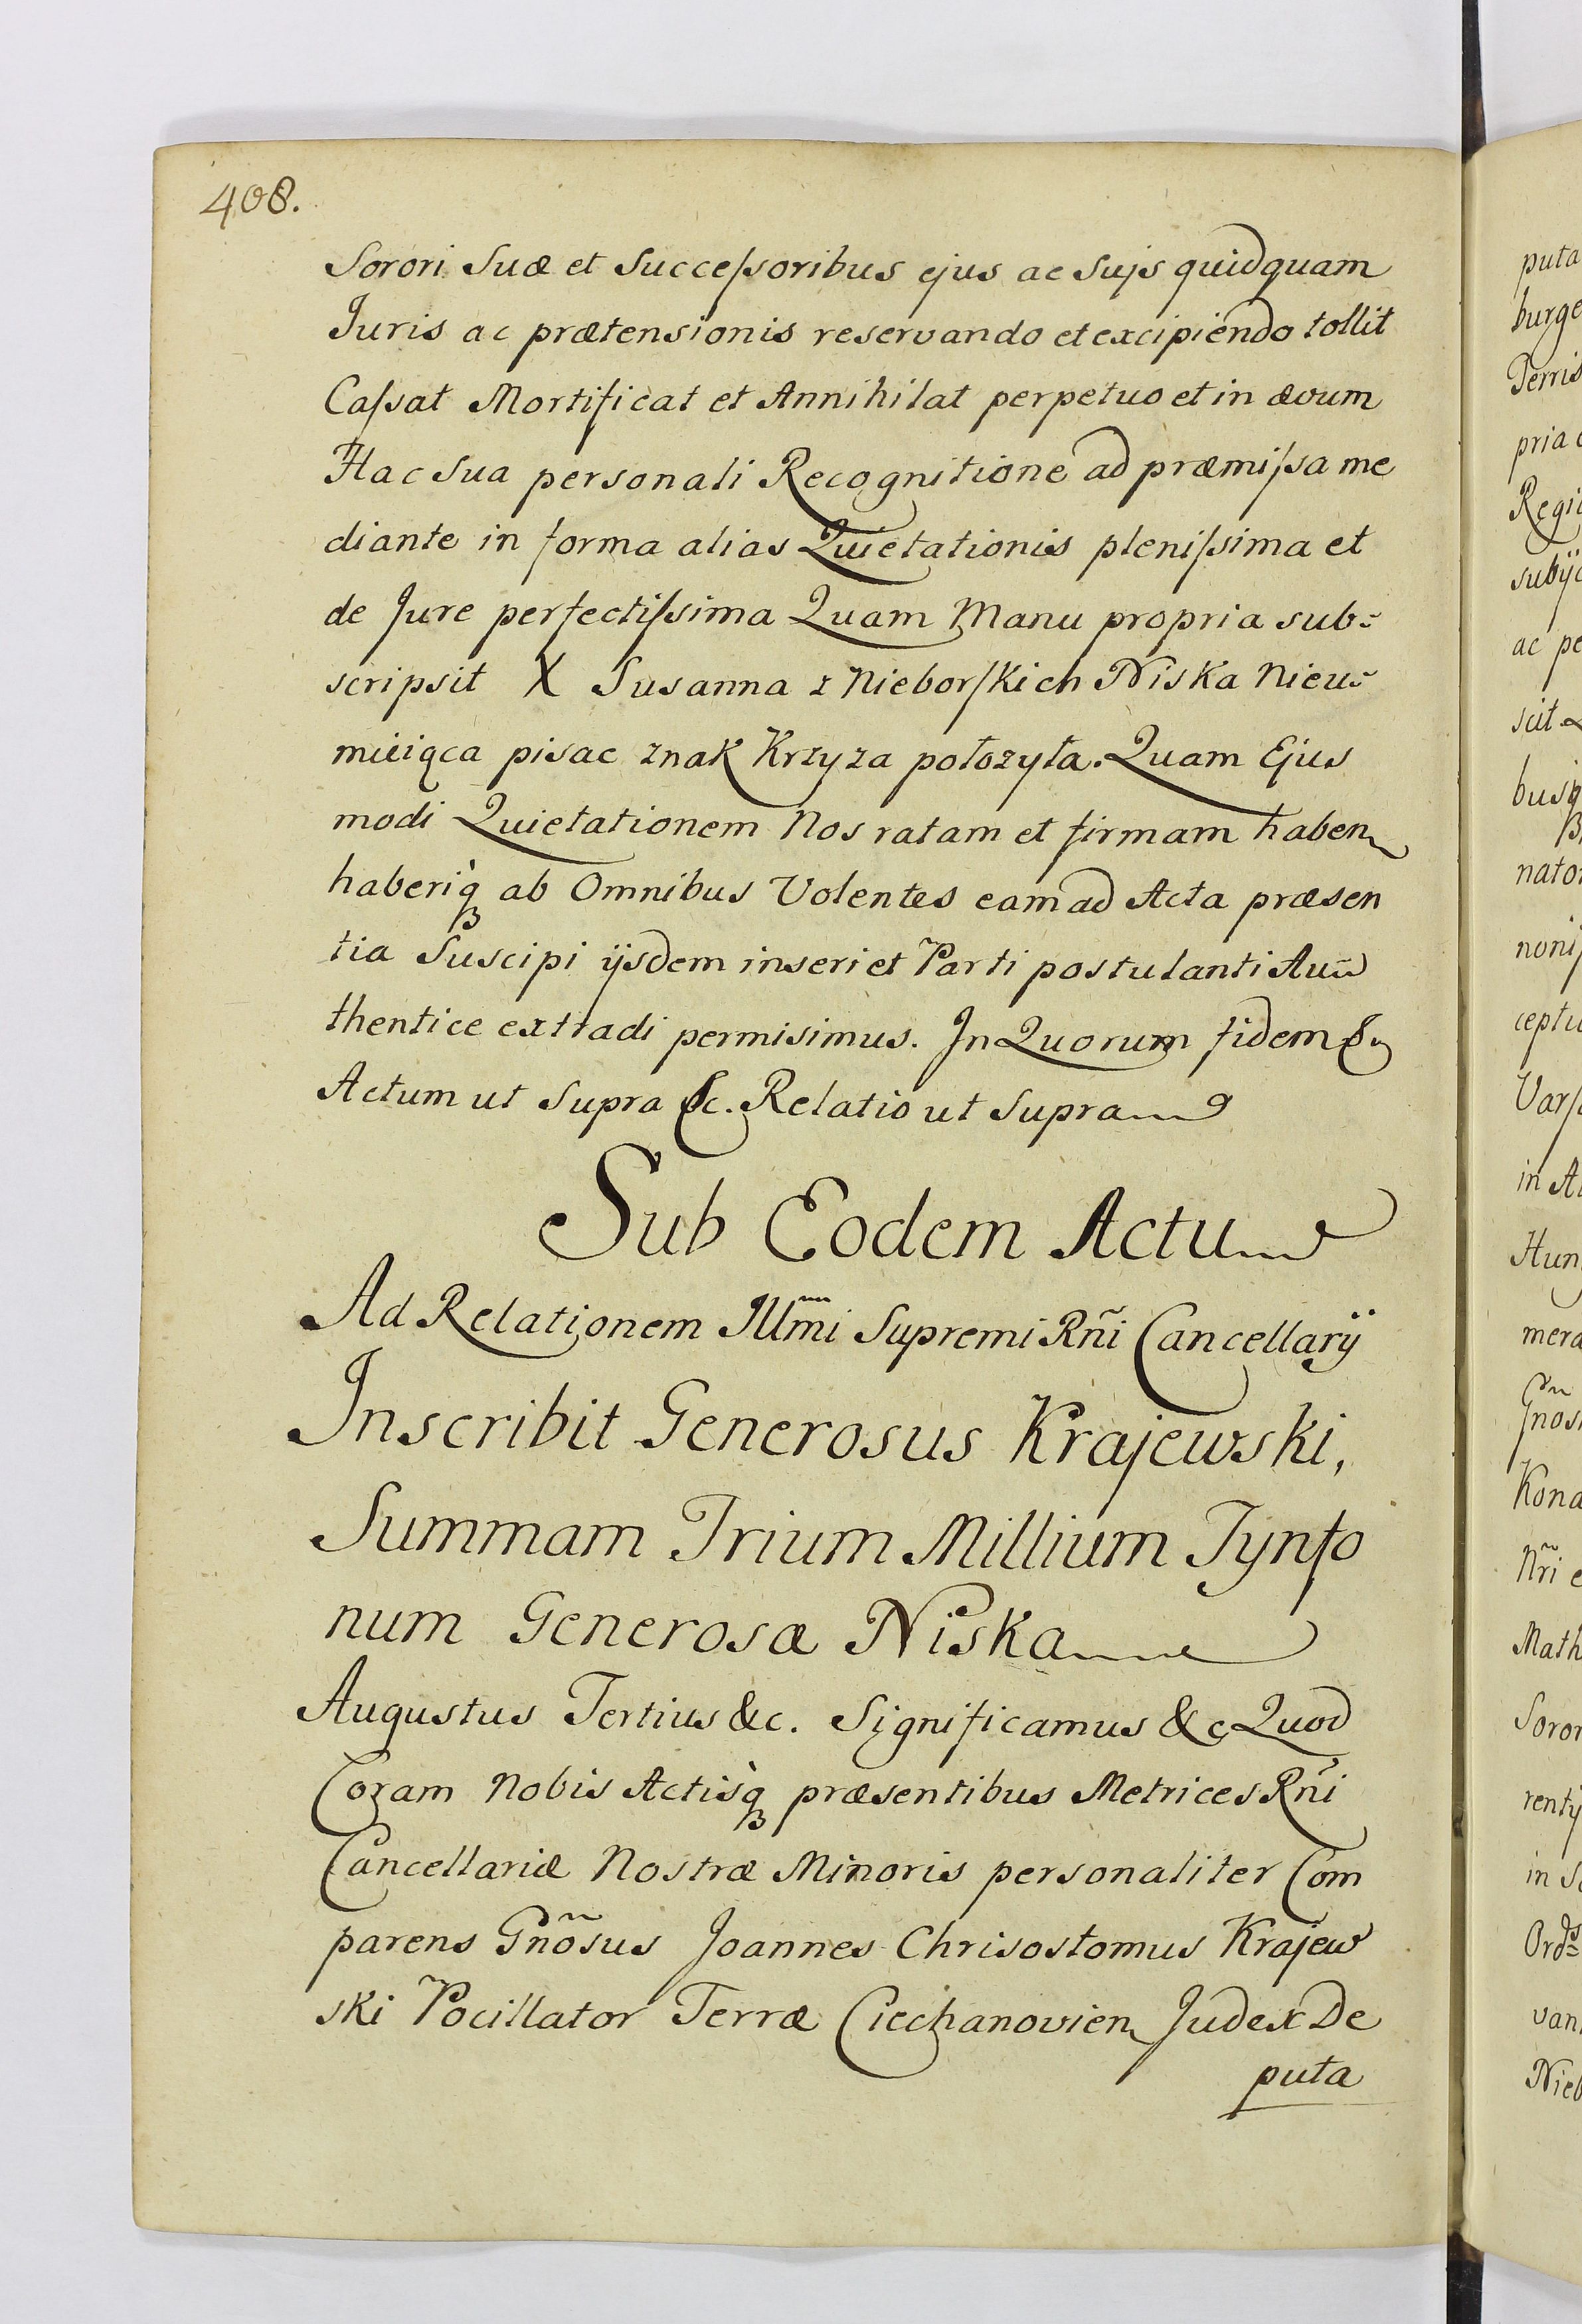 408.
Sorori Suæ et Succeſsoribus ejus ac Sujs quidquam
Juris ac prætensionis reservando et excipiendo tollit
Caſsat Mortificat et Annihilat perpetuo et in ævum
Hac Sua personali Recognitione ad præmiſsa me
diante in forma alias Quietationis pleniſsima et
de Jure perfectiſsima Quam Manu propria sub=
scripsit X Susanna z Nieborſkich Niska Nieu=
mieiąca pisac znak Krzyza położyła. Quam Ejus
modi Quietationem Nos ratam et firmam haben
haberiq́ꝫ ab Omnibus Volentes eam ad Acta præsen
tia Suscipi ijsdem inseri et Parti postulanti Au=
thentice extradi permisimus. In Quorum fidem &
Actum ut Supra &c. Relatio ut Supra
Sub Eodem Actu
Ad Relationem Illm̃i Supremi Rñi Cancellarij
Inscribit Generosus Krajewski,
Summam Trium Millium Tynfo
num Generosæ Niska
Augustus Tertius &c. Significamus &c Quod
Coram Nobis Actisq́ꝫ præsentibus Metrices Rñi
Cancellariæ Nostræ Minoris personaliter Com
parens Gñosus Joannes Chrisostomus Krajew
ski Pocillator Terræ Ciechanovien Judex De
puta
puta
burge
Terris
pria c
Regi
subijc
ac pe
scit
busq
nato
noniſ
ceptu
Varſ
in A
Hun
mera
Gños
Kona
Nr̃i e
Math
Soror
rentij
in S
Ordꝭ
van
Nieb